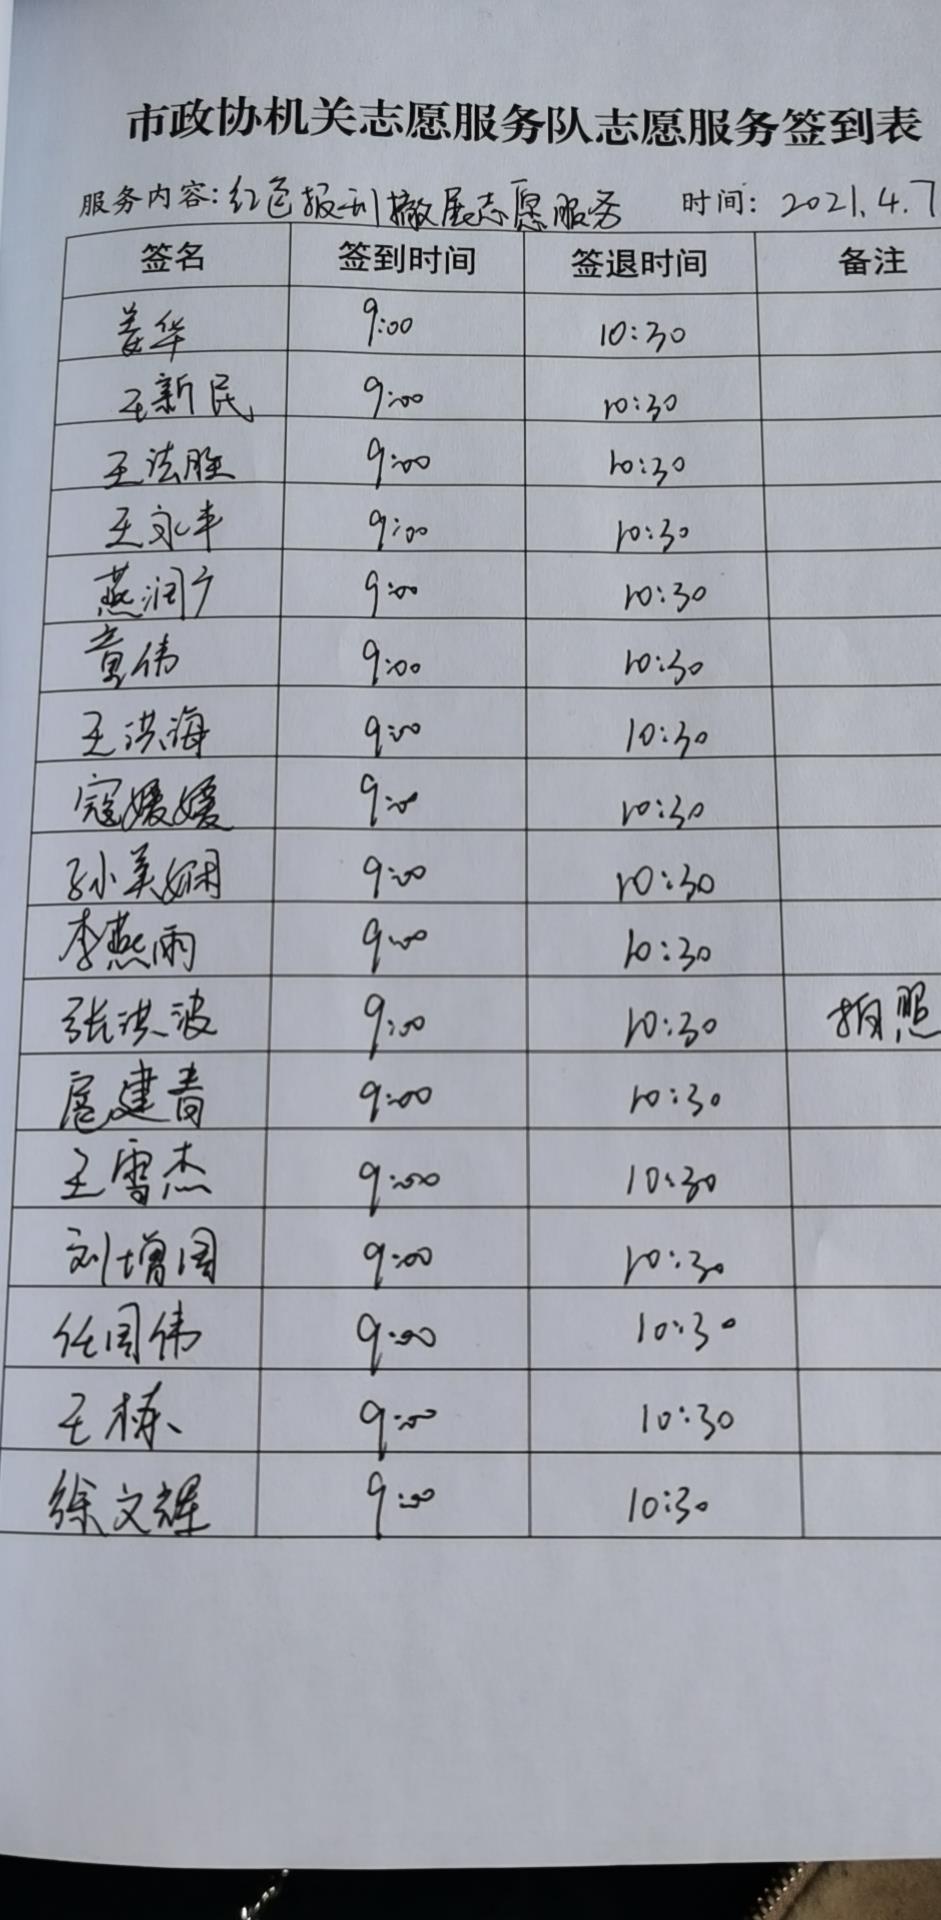 市政协机关志愿服务队志愿服务签到表
服务内容:红色报刊撤展志愿服务 时间:2021.4.7
签名 签到时间 签退时间 备注
姜华 9:00 10:30
王新民 9:00 10:30
王法胜 9:00 10:30
王永丰 9:00 10:30
燕润广 9:00 10:30
童伟 9:00 10:30
王洪海 9:00 10:30
寇媛媛 9:00 10:30
孙美娴 9:00 10:30
李燕雨 9:00 10:30
张洪波 9:00 10:30 拍照
扈建青 9:00 10:30
王雪杰 9:00 10:30
刘增国 9:00 10:30
任同伟 9:00 10:30
王栋 9:00 10:30
徐文辉 9:00 10:30